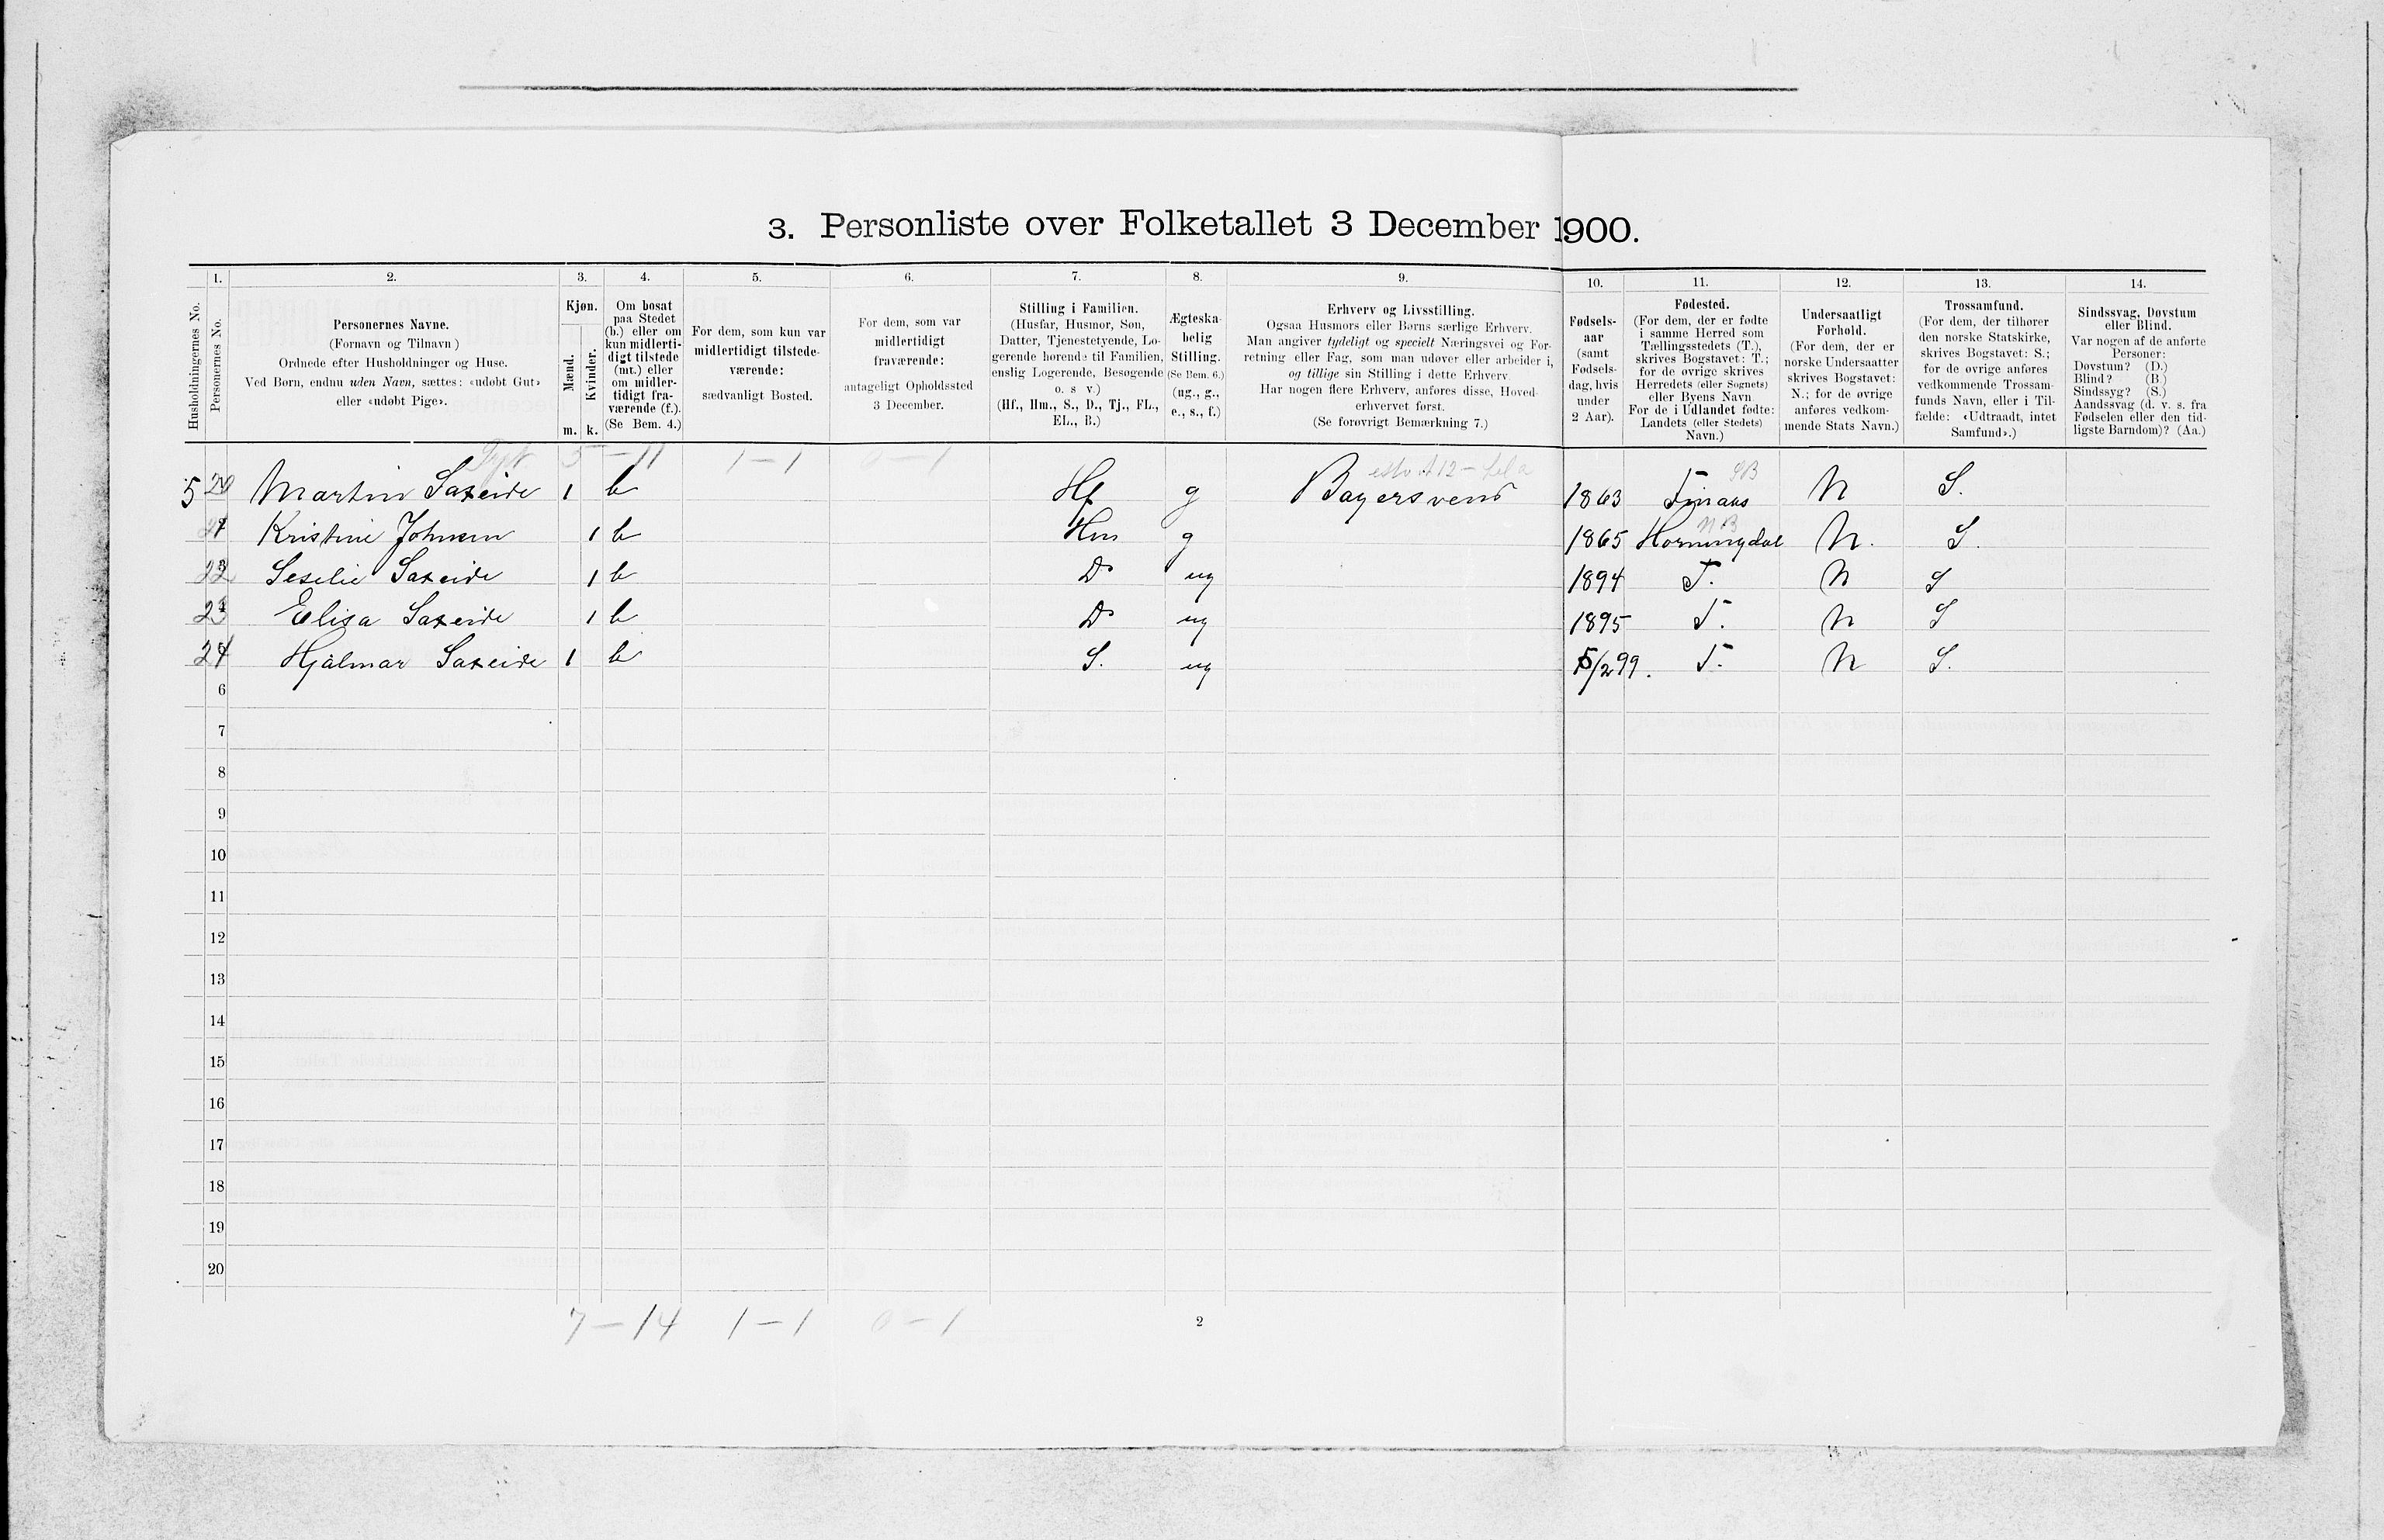 3. Personliste over Folketallet 3 December 1900.
1. 2. 3. 4. 5. 6. 7. 8. 9. 10. 11. 12. 13. 14.
Husholdningernes No.
Personernes No.
Personernes Navne.
(Fornavn og Tilnavn)
Ordnede efter Husholdninger og Huse.
Ved Børn, endnu uden Navn, sættes: «udøbt Gut»
eller «udøbt Pige».
Kjøn.
Mænd.
Kvinder.
m. k.
Om bosat
paa Stedet
(b.) eller om
kun midlerti-
digt tilstede
(mt.) eller
om midler-
tidigt fra-
værende (f.).
(Se Bem. 4.)
For dem, som kun var
midlertidigt tilstede-
værende:
sædvanligt Bosted.
For dem, som var
midlertidigt
fraværende:
antageligt Opholdssted
3 December.
Stilling i Familien.
(Husfar, Husmor, Søn,
Datter, Tjenestetyende, Lo-
gerende hørende til Familien,
enslig Logerende, Besøgende
o. s v.)
(Hf., Hm., S., D., Tj., FL.,
EL., B.)
Ægteska-
belig
Stilling.
(Se Bem. 6.)
(ug., g.,
e., s., f.)
Erhverv og Livsstilling.
Ogsaa Husmors eller Børns særlige Erhverv.
Man angiver tydeligt og specielt Næringsvei og For-
retning eller Fag, som man udøver eller arbeider i,
og tillige sin Stilling i dette Erhverv
Har nogen flere Erhverv, anføres disse, Hoved-
erhvervet først.
(Se forøvrigt Bemærkning 7.)
Fødsels-
aar
(samt
Fødsels-
dag, hvis
under
2 Aar).
Fødested.
(For dem, der er fødte
i samme Herred som
Tællingsstedets (T.),
skrives Bogstavet: T.;
for de øvrige skrives
Herredets (eller Sognets)
eller Byens Navn
For de i Udlandet fødte:
Landets (eller Stedets)
Navn.)
Undersaatligt
Forhold.
(For dem, der er
norske Undersaatter
skrives Bogstavet:
N.; for de øvrige
anføres vedkom-
mende Stats Navn.)
Trossamfund.
(For dem, der tilhører
den norske Statskirke,
skrives Bogstavet: S.;
for de øvrige anføres
vedkommende Trossam-
funds Navn, eller i Til-
fælde: «Udtraadt, intet
Samfund».)
Sindssvag, Døvstum
eller Blind.
Var nogen af de anførte
Personer:
Døvstum? (D.)
Blind? (B.)
Sindssyg? (S.)
Aandssvag (d. v. s. fra
Fødselen eller den tid-
ligste Barndom)? (Aa.)
5 – 11 1 – 1 0 – 1
5 20 Martin Saxeide 1 b Hf g Bagersvend 1863 S.B. N S.
Kristine Johnsen 1 b Hm g 1865 Horningdal N.B. N. S.
22 Seselie Saxeide 1 b D ug 1894 T. N S
23 Elisa Saxeide 1 b D ug 1895 T. N S
24 Hjalmar Saxeide 1 b S. ug 5/2 99. T. N S.
6
7
8
9
10
11
12
13
14
15
16
17
18
19
20
7 – 14 1 – 1 0 – 1
2